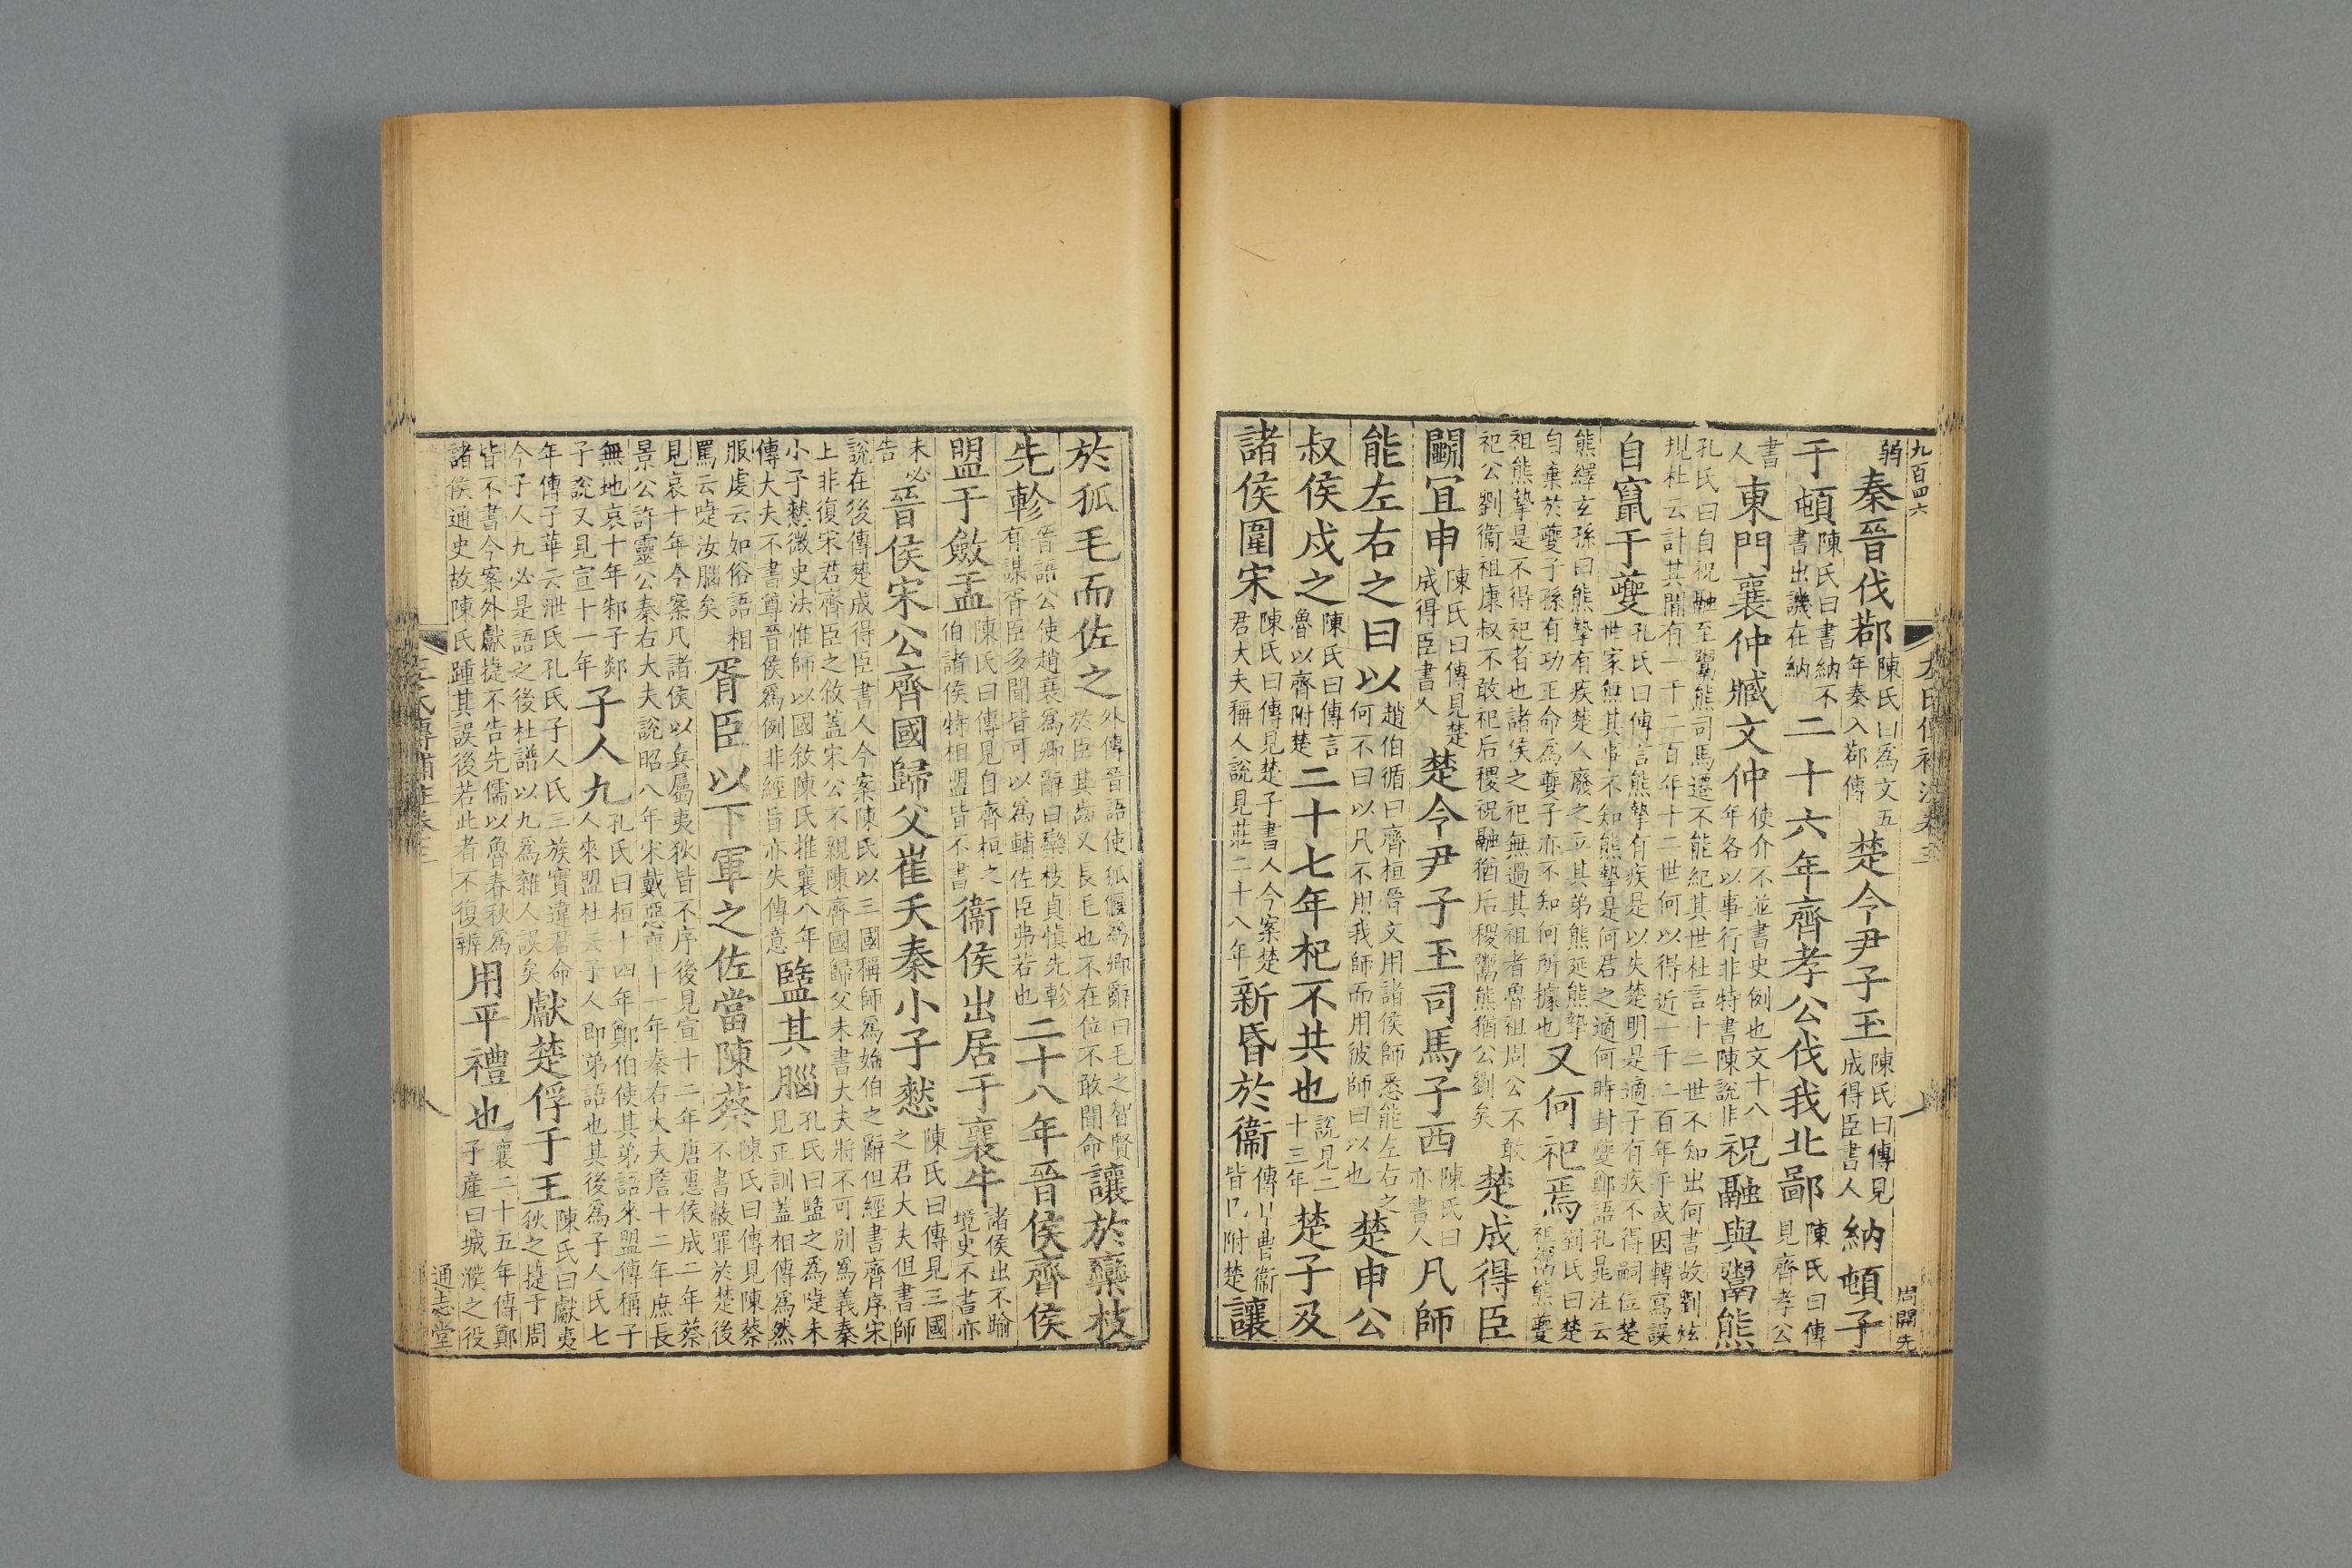 九百四六
左氏傳補注卷三
八
周開先
弱秦晉伐鄀陳氏曰爲文五年秦入鄀傳楚令尹子玉陳氏曰傳見成得臣書人納頓子
于頓陳氏曰書納不書出譏在納二十六年齊孝公伐我北鄙陳氏曰傳見齊孝公
書人東門襄仲臧文仲使介不並書史例也文十八年各以事行非特書陳說非祝融與鬻熊
孔氏曰自祝融至鬻熊司馬遷不能紀其世杜言十二世不知出何書故劉炫規杜云計其間有一千二百年十二世何以得近一千二百年乎或因轉寫誤
自竄于夔孔氏曰傳言熊摯有疾是以失楚明是適子有疾不得嗣位楚世家無其事不知熊摯是何君之適何時封夔鄭語孔晁注云
熊繹玄孫曰熊摯有疾楚人廢之立其弟熊延熊摯自棄於夔子孫有功王命爲夔子亦不知何所據也又何祀焉劉氏曰楚祖鬻熊夔
祖熊摯是不得祀者也諸侯之祀無過其祖者魯祖周公不敢祀公劉衞祖康叔不敢祀后稷祝融猶后稷鬻熊猶公劉矣楚成得臣
鬬宜申陳氏曰傳見楚成得臣書人楚令尹子玉司馬子西陳氏曰亦書人凡師
能左右之曰以趙伯循曰齊桓晉文用諸侯師悉能左右之何不曰以凡不用我師而用彼師曰以也楚申公
叔侯戍之陳氏曰傳言魯以齊附楚二十七年杞不共也說見二十三年楚子及
諸侯圍宋陳氏曰傳見楚子書人今案楚君大夫稱人說見莊二十八年新昏於衞傳以曹衞皆已附楚讓
於狐毛而佐之外傳晉語使狐偃爲卿辭曰毛之智賢於臣其齒又長毛也不在位不敢聞命讓於欒枝
先軫晉語公使趙衰爲卿辭曰欒枝貞慎先軫有謀胥臣多聞皆可以爲輔佐臣弗若也二十八年晉侯齊侯
盟于斂盂陳氏曰傳見自齊桓之伯諸侯特相盟皆不書衞侯出居于襄牛諸侯出不踰境史不書亦
未必告晉侯宋公齊國歸父崔夭秦小子憖陳氏曰傳見三國之君大夫但書師
說在後傳楚成得臣書人今案陳氏以三國稱師爲始伯之辭但經書齊序宋上非復宋君齊臣之敘蓋宋公不親陳齊國歸父未書大夫將不可別爲義秦
小子憖微史法惟師以國敘陳氏推襄八年傳大夫不書尊晉侯爲例非經旨亦失傳意盬其腦孔氏曰盬之爲啑未見正訓蓋相傳爲然
服虔云如俗語相罵云啑汝腦矣胥臣以下軍之佐當陳蔡陳氏曰傳見陳蔡不書蔽罪於楚後
見哀十年今案凡諸侯以兵屬夷狄皆不序後見宣十二年唐惠侯成二年蔡景公許靈公秦右大夫說昭八年宋戴惡襄十一年秦右大夫詹十二年庶長
無地哀十年邾子郯子說又見宣十一年子人九孔氏曰桓十四年鄭伯使其弟語來盟傳稱子人來盟杜云子人即弟語也其後爲子人氏七
年傳子華云泄氏孔氏子人氏三族實違君命今子人九必是語之後杜譜以九爲雜人誤矣獻楚俘于王陳氏曰獻夷狄之捷于周
皆不書今案外獻捷不告先儒以魯春秋爲諸侯通史故陳氏踵其誤後若此者不復辨用平禮也襄二十五年傳鄭子產曰城濮之役
左氏傳補注卷三
八
通志堂